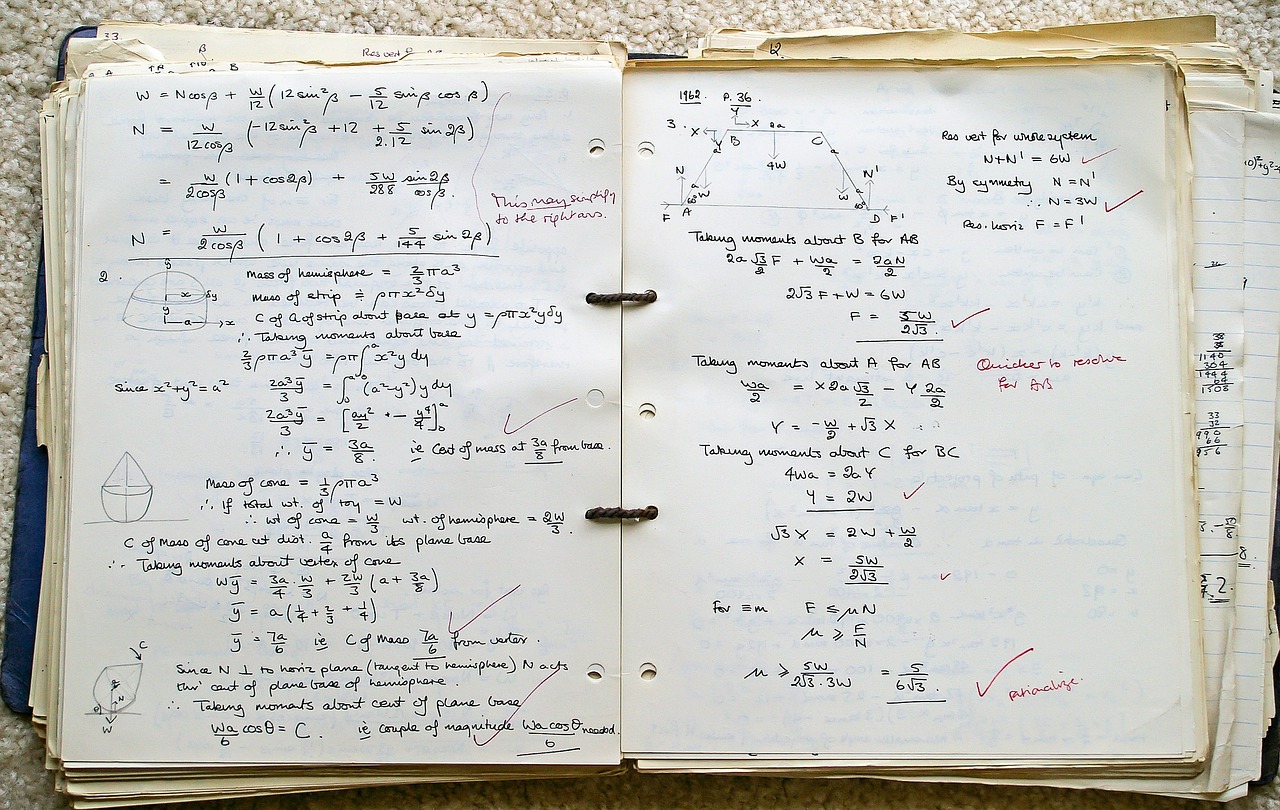 33.
β
Res vert
B
W = N cosβ + W/12 (12 sin²β − 5/12 sinβ cosβ)
N = W/12cosβ (−12 sin²β + 12 + 5/2.12 sin 2β)
= W/2cosβ (1 + cos2β) + 5W/288 sin2β/cosβ.
This may simplify
to the right ans.
N = W/2cosβ (1 + cos 2β + 5/144 sin 2β)
2.
y
x δy
y
a x
Mass of hemisphere = 2/3 πa³
Mass of strip ≑ ρπx²δy
C of G of strip about base at y = ρπx²yδy
∴ Taking moments about base
2/3 ρπa³ȳ = ρπ∫₀ᵃ x²y dy
Since x²+y²=a² 2a³ȳ/3 = ∫₀ᵃ (a²−y²)y dy
2a³ȳ/3 = [ay²/2 − y⁴/4]₀ᵃ
∴ ȳ = 3a/8 ie Cent of mass at 3a/8 from base.
Mass of cone = 1/3 ρπa³
∴ If total wt. of toy = W
∴ wt of cone = W/3 wt. of hemisphere = 2W/3.
C of Mass of cone at dist. a/4 from its plane base
∴ Taking moments about vertex of cone
Wȳ = 3a/4 . W/3 + 2W/3 (a + 3a/8)
ȳ = a(1/4 + 2/3 + 1/4)
ȳ = 7a/6 ie C of Mass 7a/6 from vertex.
C
N
θ
W
Since N ⊥ to horiz plane (tangent to hemisphere) N acts
thro' cent of plane base of hemisphere.
∴ Taking moments about cent of plane base
Wa/6 cosθ = C. ie couple of magnitude Wa cosθ/6 needed.
12.
1962. P. 36.
3.
Y
X X 2a
B C
Y a a
4W
N N'
a a
W W
60° 60°
F A D F'
Res vert for whole system
N+N' = 6W
By symmetry N = N'
∴ N = 3W
Res. horiz F = F'
Taking moments about B for AB
2a √3/2 F + Wa/2 = 2aN/2
2√3 F + W = 6W
F = 5W/2√3.
Taking moments about A for AB
Quicker to resolve
for AB
Wa/2 = X 2a √3/2 − Y 2a/2
Y = −W/2 + √3 X
Taking moments about C for BC
4Wa = 2aY
Y = 2W
√3 X = 2W + W/2
X = 5W/2√3
For ≡m F ≤ μN
μ ≥ F/N
μ ≥ 5W/2√3.3W = 5/6√3.
rationalize.
38
38
1140
304
1444
64
1508
33
32
990
66
956